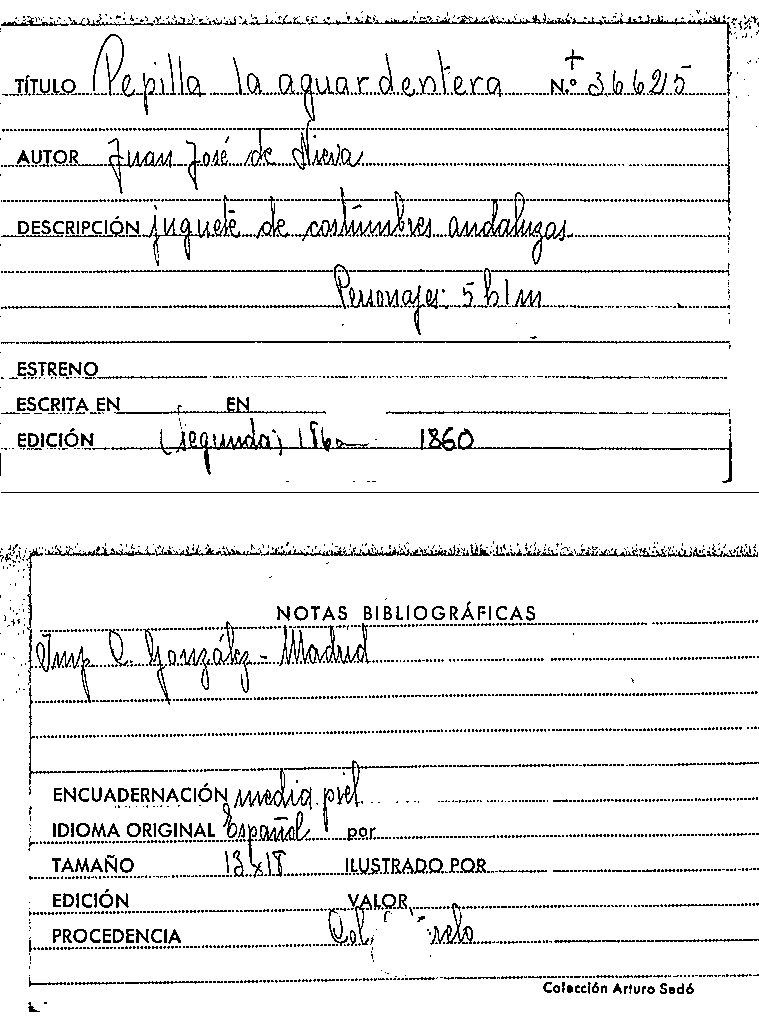 TÍTULO Pepilla la aguardentera N.º 36625
AUTOR Juan José de Nieva
DESCRIPCIÓN juguete de costumbres andaluzas
Personajes: 5 h 1 m
ESTRENO
ESCRITA EN EN
EDICIÓN (Segunda; 1860 1860
NOTAS BIBLIOGRÁFICAS
Imp C. González - Madrid
ENCUADERNACIÓN media piel
IDIOMA ORIGINAL Español por
TAMAÑO 13x18 ILUSTRADO POR
EDICIÓN VALOR
PROCEDENCIA Col
Colección Arturo Sedó